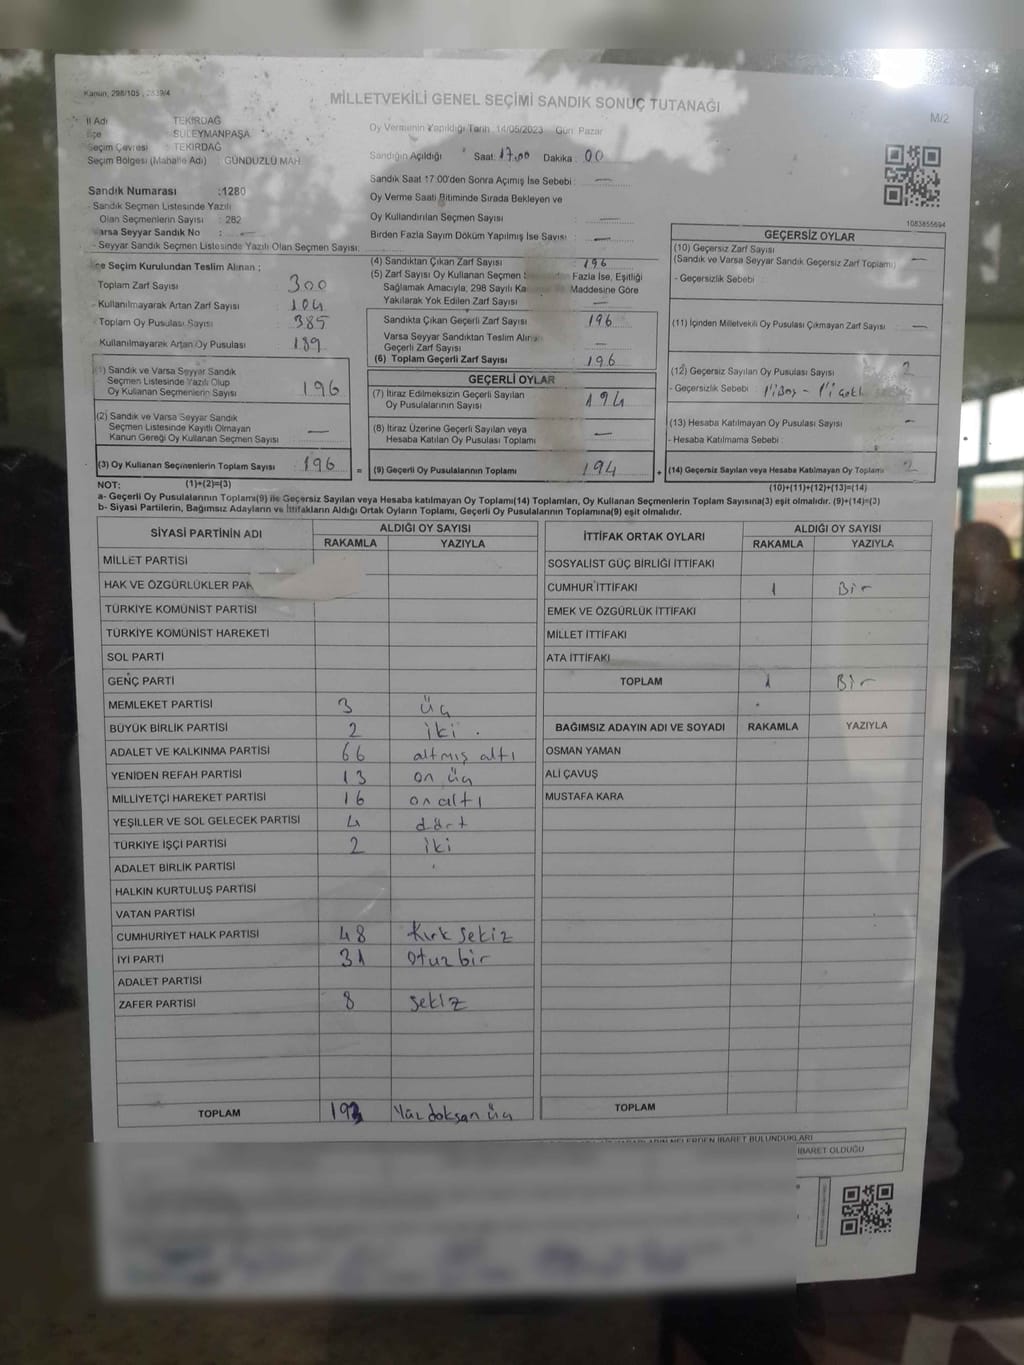 Kanun, 298/105, 2839/4
MİLLETVEKİLİ GENEL SEÇİMİ SANDIK SONUÇ TUTANAĞI
M/2
İl Adı TEKİRDAĞ
İlçe SÜLEYMANPAŞA
Seçim Çevresi : TEKİRDAĞ
Seçim Bölgesi (Mahalle Adı) : GÜNDÜZLÜ MAH.
Sandık Numarası :1280
- Sandık Seçmen Listesinde Yazılı
Olan Seçmenlerin Sayısı : 282
Varsa Seyyar Sandık No : —
- Seyyar Sandık Seçmen Listesinde Yazılı Olan Seçmen Sayısı:
Oy Vermenin Yapıldığı Tarih :14/05/2023 Gün: Pazar
Sandığın Açıldığı Saat: 17.00 Dakika: 00
Sandık Saat 17.00'den Sonra Açımış İse Sebebi : —
Oy Verme Saati Bitiminde Sırada Bekleyen ve
Oy Kullandırılan Seçmen Sayısı : —
Birden Fazla Sayım Döküm Yapılmış İse Sayısı : —
1083855694
İlçe Seçim Kurulundan Teslim Alınan :
Toplam Zarf Sayısı : 300
Kullanılmayarak Artan Zarf Sayısı : 104
Toplam Oy Pusulası Sayısı : 385
Kullanılmayarak Artan Oy Pusulası : 189
(1) Sandık ve Varsa Seyyar Sandık
Seçmen Listesinde Yazılı Olup
Oy Kullanan Seçmenlerin Sayısı : 196
(2) Sandık ve Varsa Seyyar Sandık
Seçmen Listesinde Kayıtlı Olmayan
Kanun Gereği Oy Kullanan Seçmen Sayısı : —
(3) Oy Kullanan Seçmenlerin Toplam Sayısı : 196
(4) Sandıktan Çıkan Zarf Sayısı : 196
(5) Zarf Sayısı Oy Kullanan Seçmen Fazla İse, Eşitliği
Sağlamak Amacıyla, 298 Sayılı Maddesine Göre
Yakılarak Yok Edilen Zarf Sayısı : —
Sandıkta Çıkan Geçerli Zarf Sayısı : 196
Varsa Seyyar Sandıktan Teslim Alınan
Geçerli Zarf Sayısı : —
(6) Toplam Geçerli Zarf Sayısı : 196
GEÇERLİ OYLAR
(7) İtiraz Edilmeksizin Geçerli Sayılan
Oy Pusulalarının Sayısı : 194
(8) İtiraz Üzerine Geçerli Sayılan veya
Hesaba Katılan Oy Pusulası Toplamı : —
= (9) Geçerli Oy Pusulalarının Toplamı : 194
GEÇERSİZ OYLAR
(10) Geçersiz Zarf Sayısı
(Sandık ve Varsa Seyyar Sandık Geçersiz Zarf Toplamı) : —
- Geçersizlik Sebebi :
(11) İçinden Milletvekili Oy Pusulası Çıkmayan Zarf Sayısı : —
(12) Geçersiz Sayılan Oy Pusulası Sayısı : 2
- Geçersizlik Sebebi :
(13) Hesaba Katılmayan Oy Pusulası Sayısı : —
- Hesaba Katılmama Sebebi :
+ (14) Geçersiz Sayılan veya Hesaba Katılmayan Oy Toplamı : 2
NOT: (1)+(2)=(3)
(10)+(11)+(12)+(13)=(14)
a- Geçerli Oy Pusulalarının Toplamı(9) ile Geçersiz Sayılan veya Hesaba katılmayan Oy Toplamı(14) Toplamları, Oy Kullanan Seçmenlerin Toplam Sayısına(3) eşit olmalıdır. (9)+(14)=(3)
b- Siyasi Partilerin, Bağımsız Adayların ve İttifakların Aldığı Ortak Oyların Toplamı, Geçerli Oy Pusulalarının Toplamına(9) eşit olmalıdır.
SİYASİ PARTİNİN ADI ALDIĞI OY SAYISI
RAKAMLA YAZIYLA
MİLLET PARTİSİ
HAK VE ÖZGÜRLÜKLER PAR
TÜRKİYE KOMÜNİST PARTİSİ
TÜRKİYE KOMÜNİST HAREKETİ
SOL PARTİ
GENÇ PARTİ
MEMLEKET PARTİSİ 3 üç
BÜYÜK BİRLİK PARTİSİ 2 iki
ADALET VE KALKINMA PARTİSİ 66 altmış altı
YENİDEN REFAH PARTİSİ 13 on üç
MİLLİYETÇİ HAREKET PARTİSİ 16 on altı
YEŞİLLER VE SOL GELECEK PARTİSİ 4 dört
TÜRKİYE İŞÇİ PARTİSİ 2 iki
ADALET BİRLİK PARTİSİ
HALKIN KURTULUŞ PARTİSİ
VATAN PARTİSİ
CUMHURİYET HALK PARTİSİ 48 Kırk sekiz
İYİ PARTİ 31 Otuz bir
ADALET PARTİSİ
ZAFER PARTİSİ 8 sekiz
TOPLAM 193 Yüz doksan üç
İTTİFAK ORTAK OYLARI ALDIĞI OY SAYISI
RAKAMLA YAZIYLA
SOSYALİST GÜÇ BİRLİĞİ İTTİFAKI
CUMHUR İTTİFAKI 1 Bir
EMEK VE ÖZGÜRLÜK İTTİFAKI
MİLLET İTTİFAKI
ATA İTTİFAKI
TOPLAM 1 Bir
BAĞIMSIZ ADAYIN ADI VE SOYADI RAKAMLA YAZIYLA
OSMAN YAMAN
ALİ ÇAVUŞ
MUSTAFA KARA
TOPLAM
NELERDEN İBARET BULUNDUKLARI
İBARET OLDUĞU